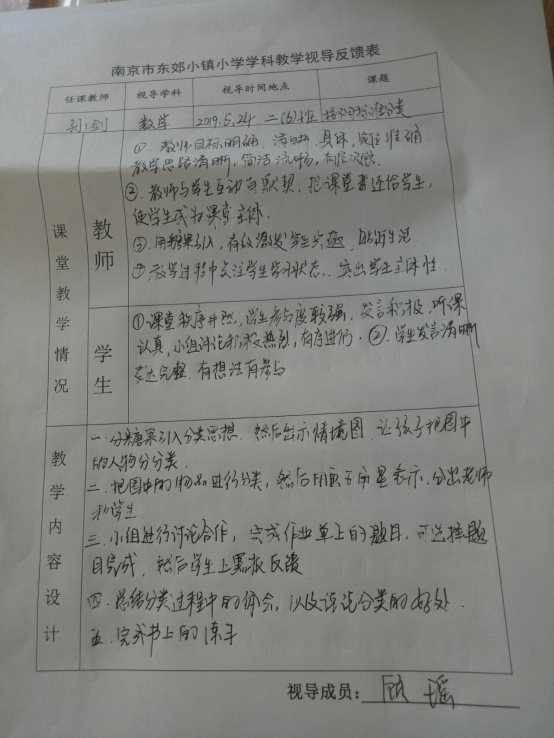 南京市东郊小镇小学学科教学视导反馈表
任课教师 视导学科 视导时间地点 课题
数学 2019.5.24 二(6)班 按不同标准分类
课堂教学情况
教师
①. 教师目标明确、清晰、具体,定位准确
教学思路清晰,简洁流畅,有层次感.
②. 教师与学生互动有默契,把课堂还给学生,
使学生成为课堂主体.
③. 用糖果引入,有效激发学生兴趣 贴近生活
④ 教学过程中关注学生学习状态,突出学生主体性
学生
①课堂秩序井然,学生参与度较强,发言积极,听课
认真,小组讨论积极热烈,有序进行. ②. 学生发言清晰
表达完整 有想法有参与
教学内容设计
一. 分糖果引入分类思想. 然后出示情境图 让孩子把图中
的人物分分类.
二. 把图中的物品进行分类,然后用画五角星表示. 分出老师
和学生
三. 小组进行讨论合作,完成作业单上的题目,可选择题
目完成,然后学生上黑板反馈
四. 总结分类过程中的体会,以及说说分类的好处.
五. 完成书上的练习
视导成员: 瑶